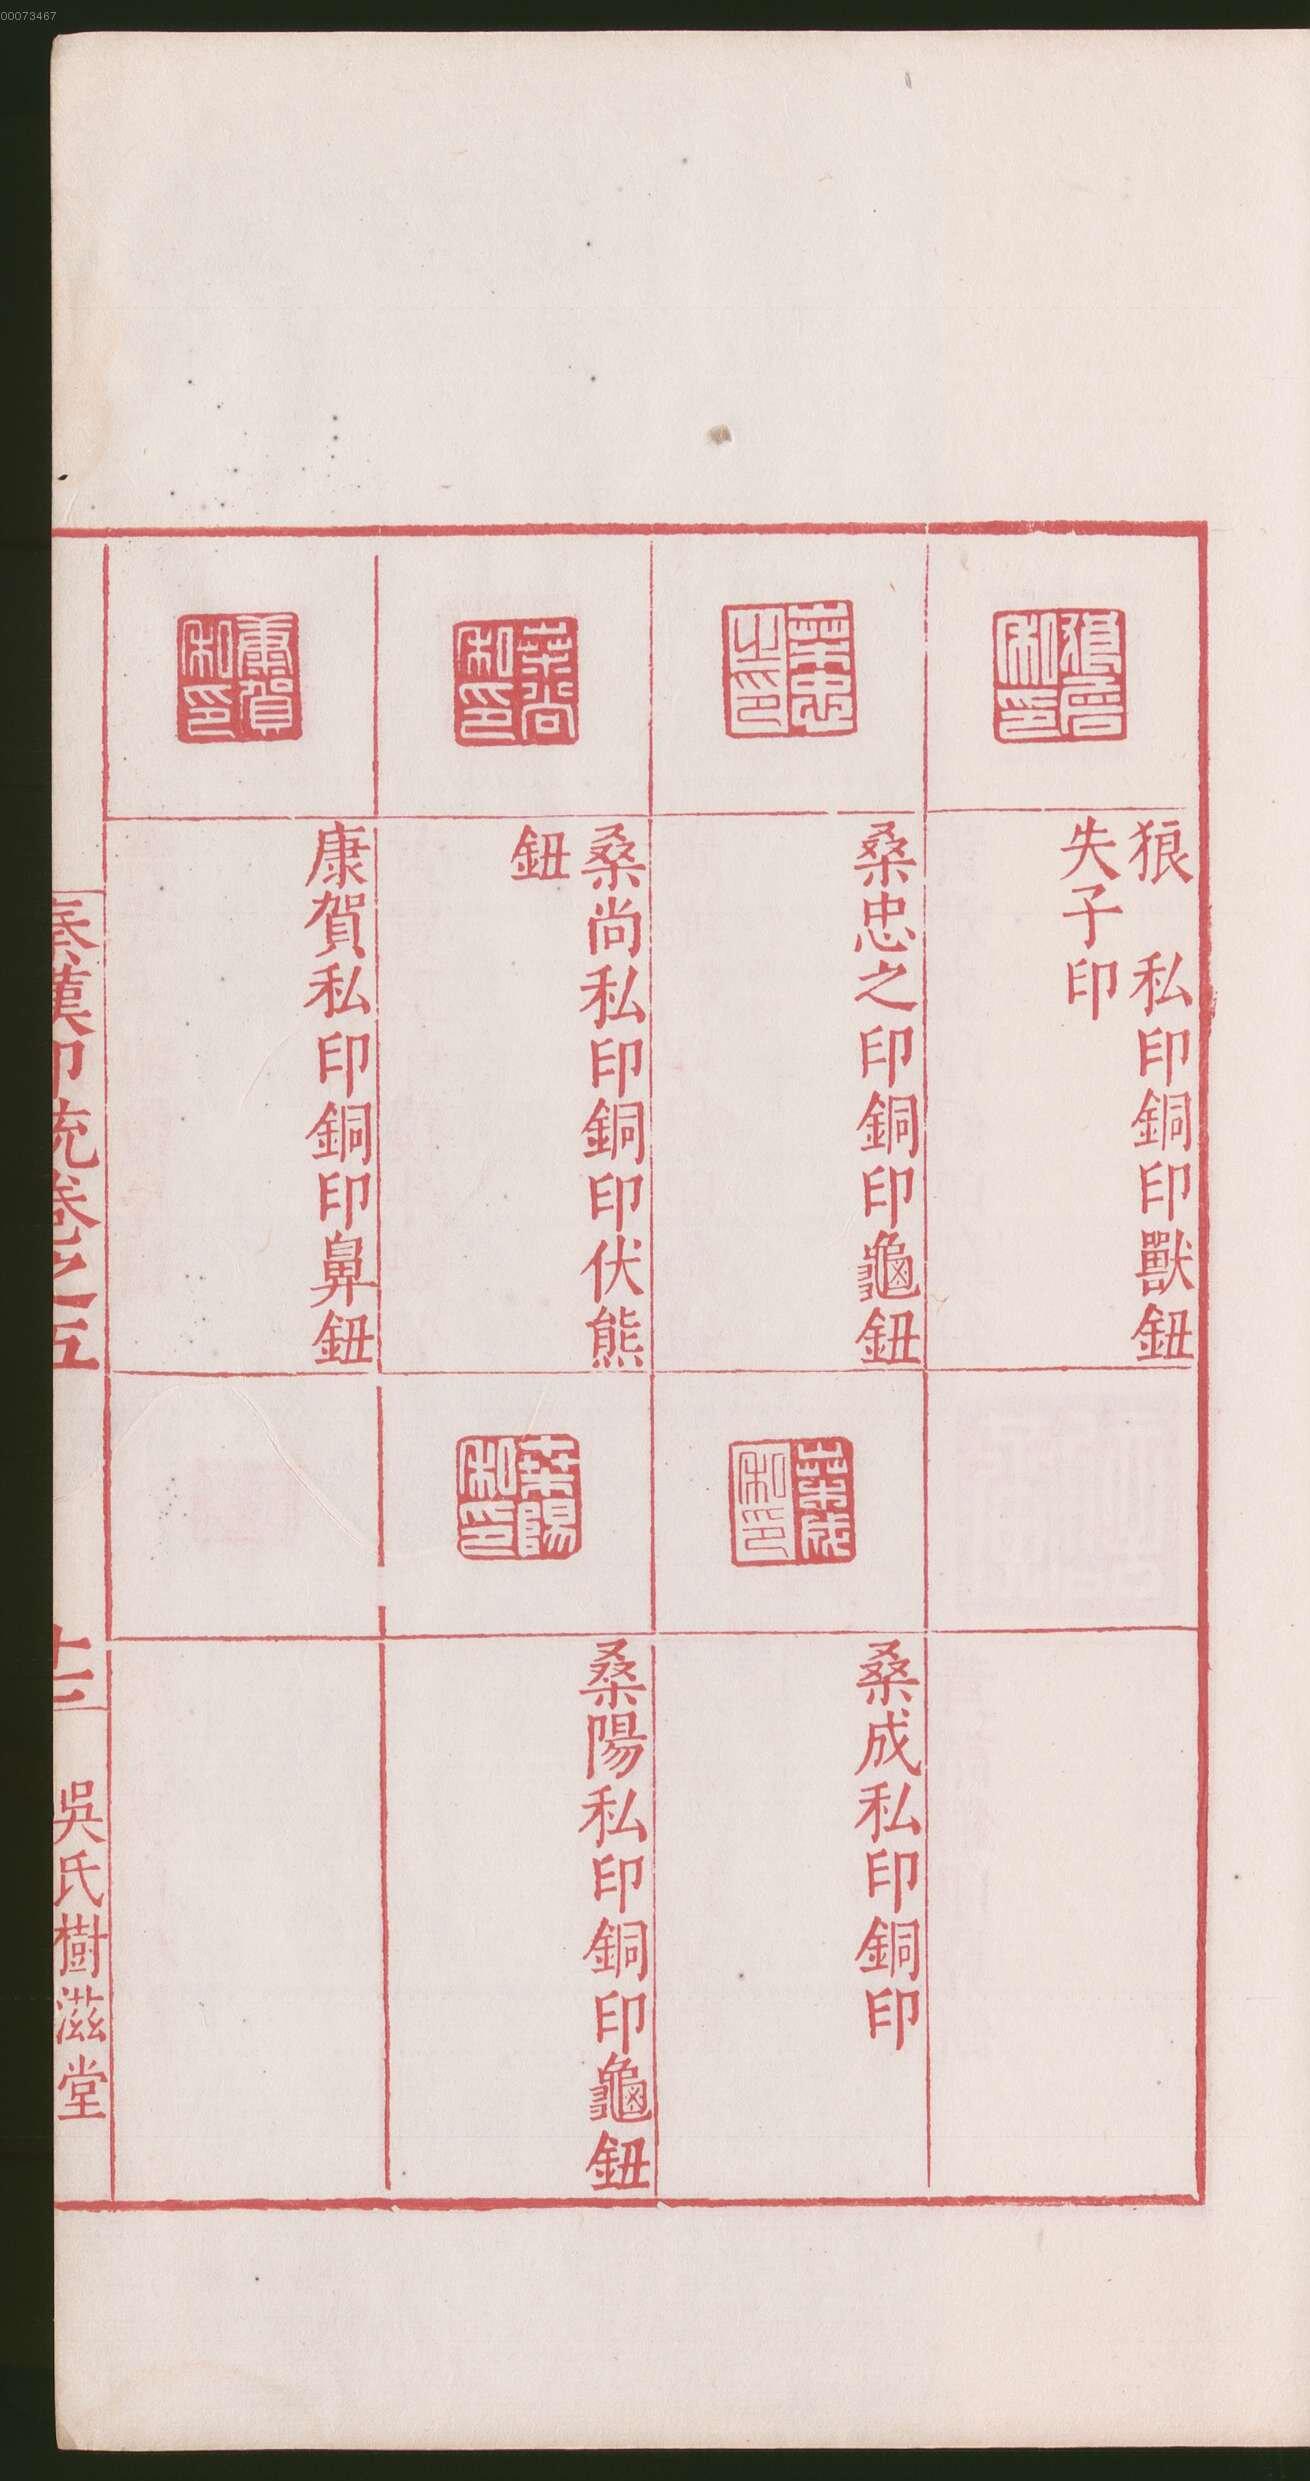 00073467
狼　私印銅印獸鈕
失子印
桑忠之印銅印龜鈕
桑尚私印銅印伏熊
鈕
康賀私印銅印鼻鈕
桑成私印銅印
桑陽私印銅印龜鈕
秦漢印統卷之五
吳氏樹滋堂
桑忠之印
桑尚私印
康賀私印
桑成私印
桑陽私印